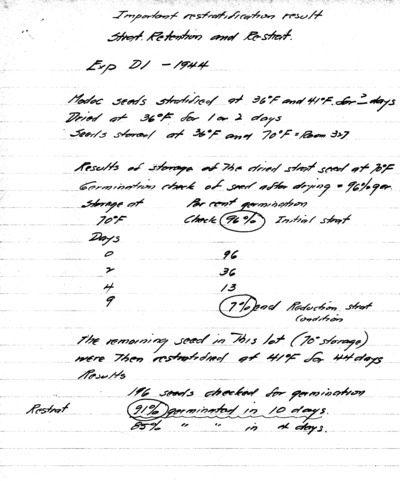 Important restratification result
Strat. Retention and Restrat.
Exp D1 - 1944
Modoc seeds stratified at 36°F and 41°F. for ? days
Dried at 36°F for 1 or 2 days
Seeds stored at 36°F and 70°F = Room 327
Results of storage of the dried strat seed at 70°F
Germination check of seed after drying = 96% ger.
Storage at Per cent germination
70°F Check 96% Initial strat
Days
0 96
2 36
4 13
9 7% end Reduction strat
condition
The remaining seed in This lot (70° storage)
were Then restratified at 41°F for 44 days
Results
196 seeds checked for germination
Restrat 91% germinated in 10 days.
85% " " in 4 days.